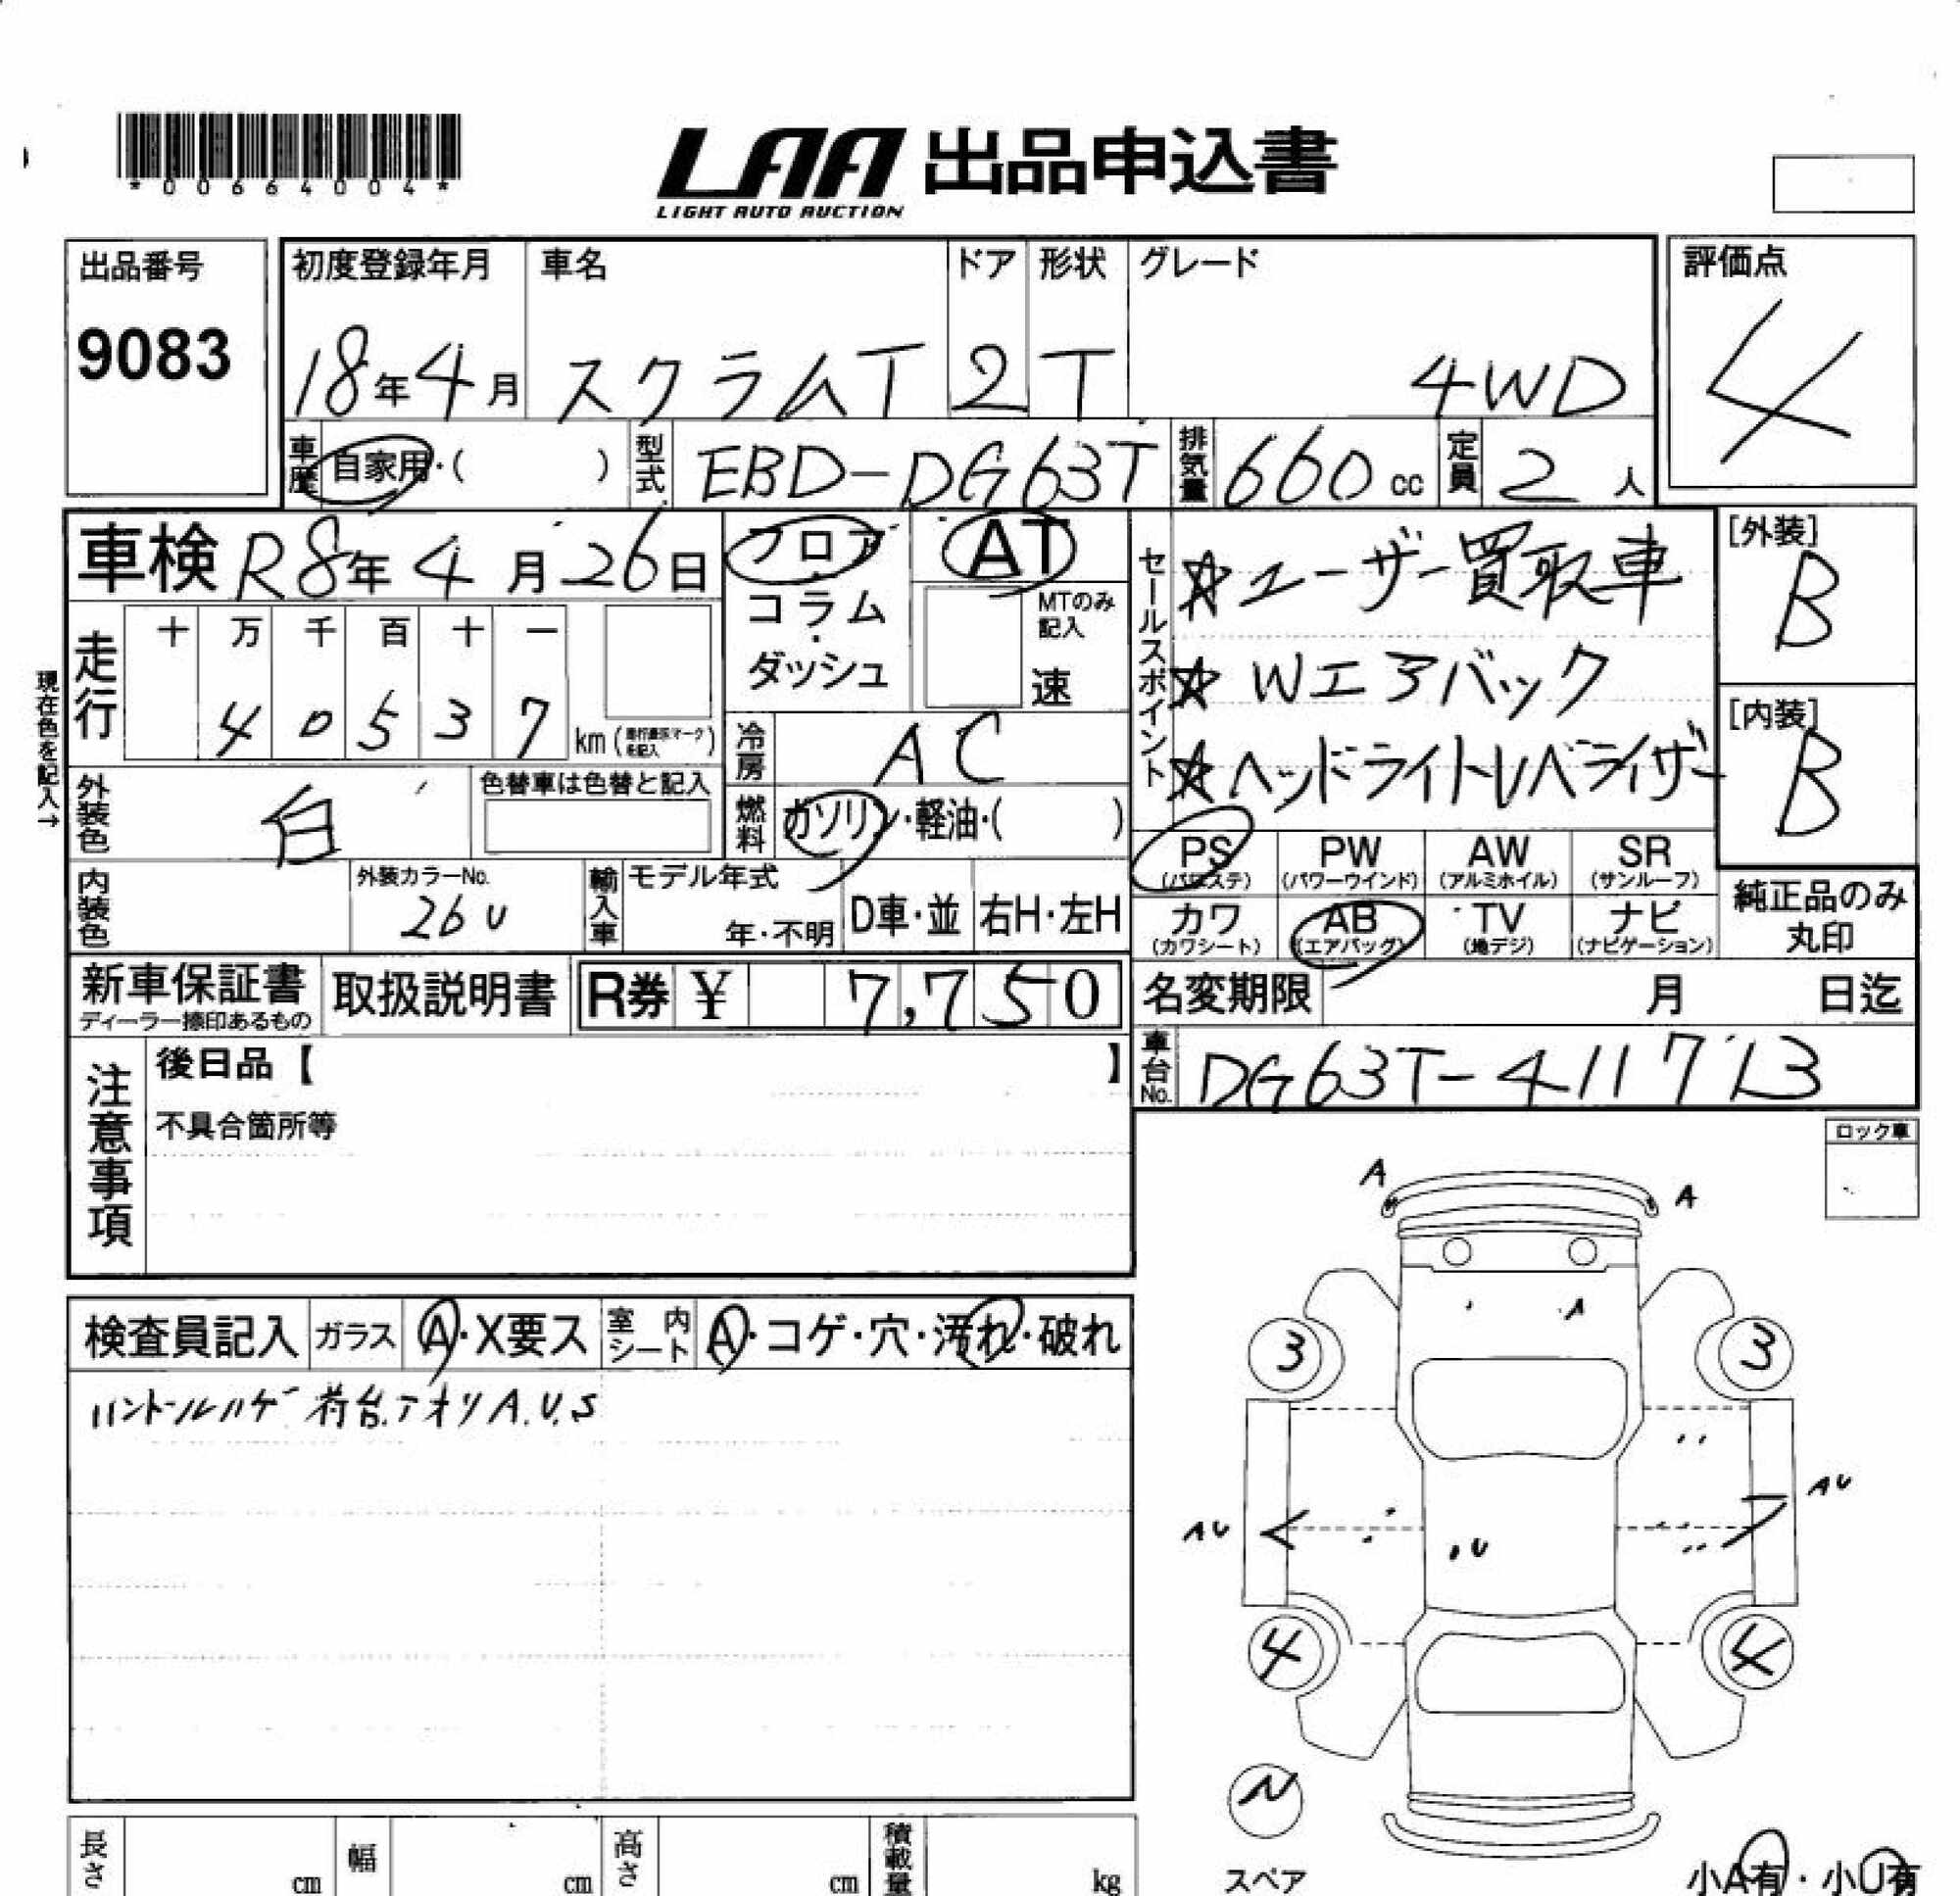 *00664004*
LAA 出品申込書
LIGHT AUTO AUCTION
出品番号
9083
初度登録年月
18年4月
車名
スクラムT
ドア
2
形状
T
グレード
4WD
評価点
4
車歴
自家用・( )
型式
EBD-DG63T
排気量
660cc
定員
2人
車検 R8年4月26日
フロア
コラム
・
ダッシュ
AT
MTのみ
記入
速
セールスポイント
☆ユーザー買取車
☆Wエアバック
☆ヘッドライトレベライザー
[外装]
B
[内装]
B
現在色を記入→
走行
十 万 千 百 十 一
4 0 5 3 7
km (
)
冷房
AC
外装色
白
色替車は色替と記入
燃料
ガソリン・軽油・( )
内装色
外装カラーNo.
26U
輸入車
モデル年式
年・不明
D車・並
右H・左H
PS
(パワステ)
PW
(パワーウインド)
AW
(アルミホイル)
SR
(サンルーフ)
カワ
(カワシート)
AB
(エアバッグ)
TV
(地デジ)
ナビ
(ナビゲーション)
純正品のみ
丸印
新車保証書
ディーラー捺印あるもの
取扱説明書
R券 ¥ 7,750
名変期限 月 日迄
車台No.
DG63T-411713
注意事項
後日品【 】
不具合箇所等
ロック車
検査員記入
ガラス
A・X要ス
室内
シート
A・コゲ・穴・汚れ・破れ
ハンドルハゲ 荷台.アオリA.U.S
A
A
A
3
3
AU
AU
U
4
4
N
スペア
小A有・小U有
長さ
cm
幅
cm
高さ
cm
積載量
kg